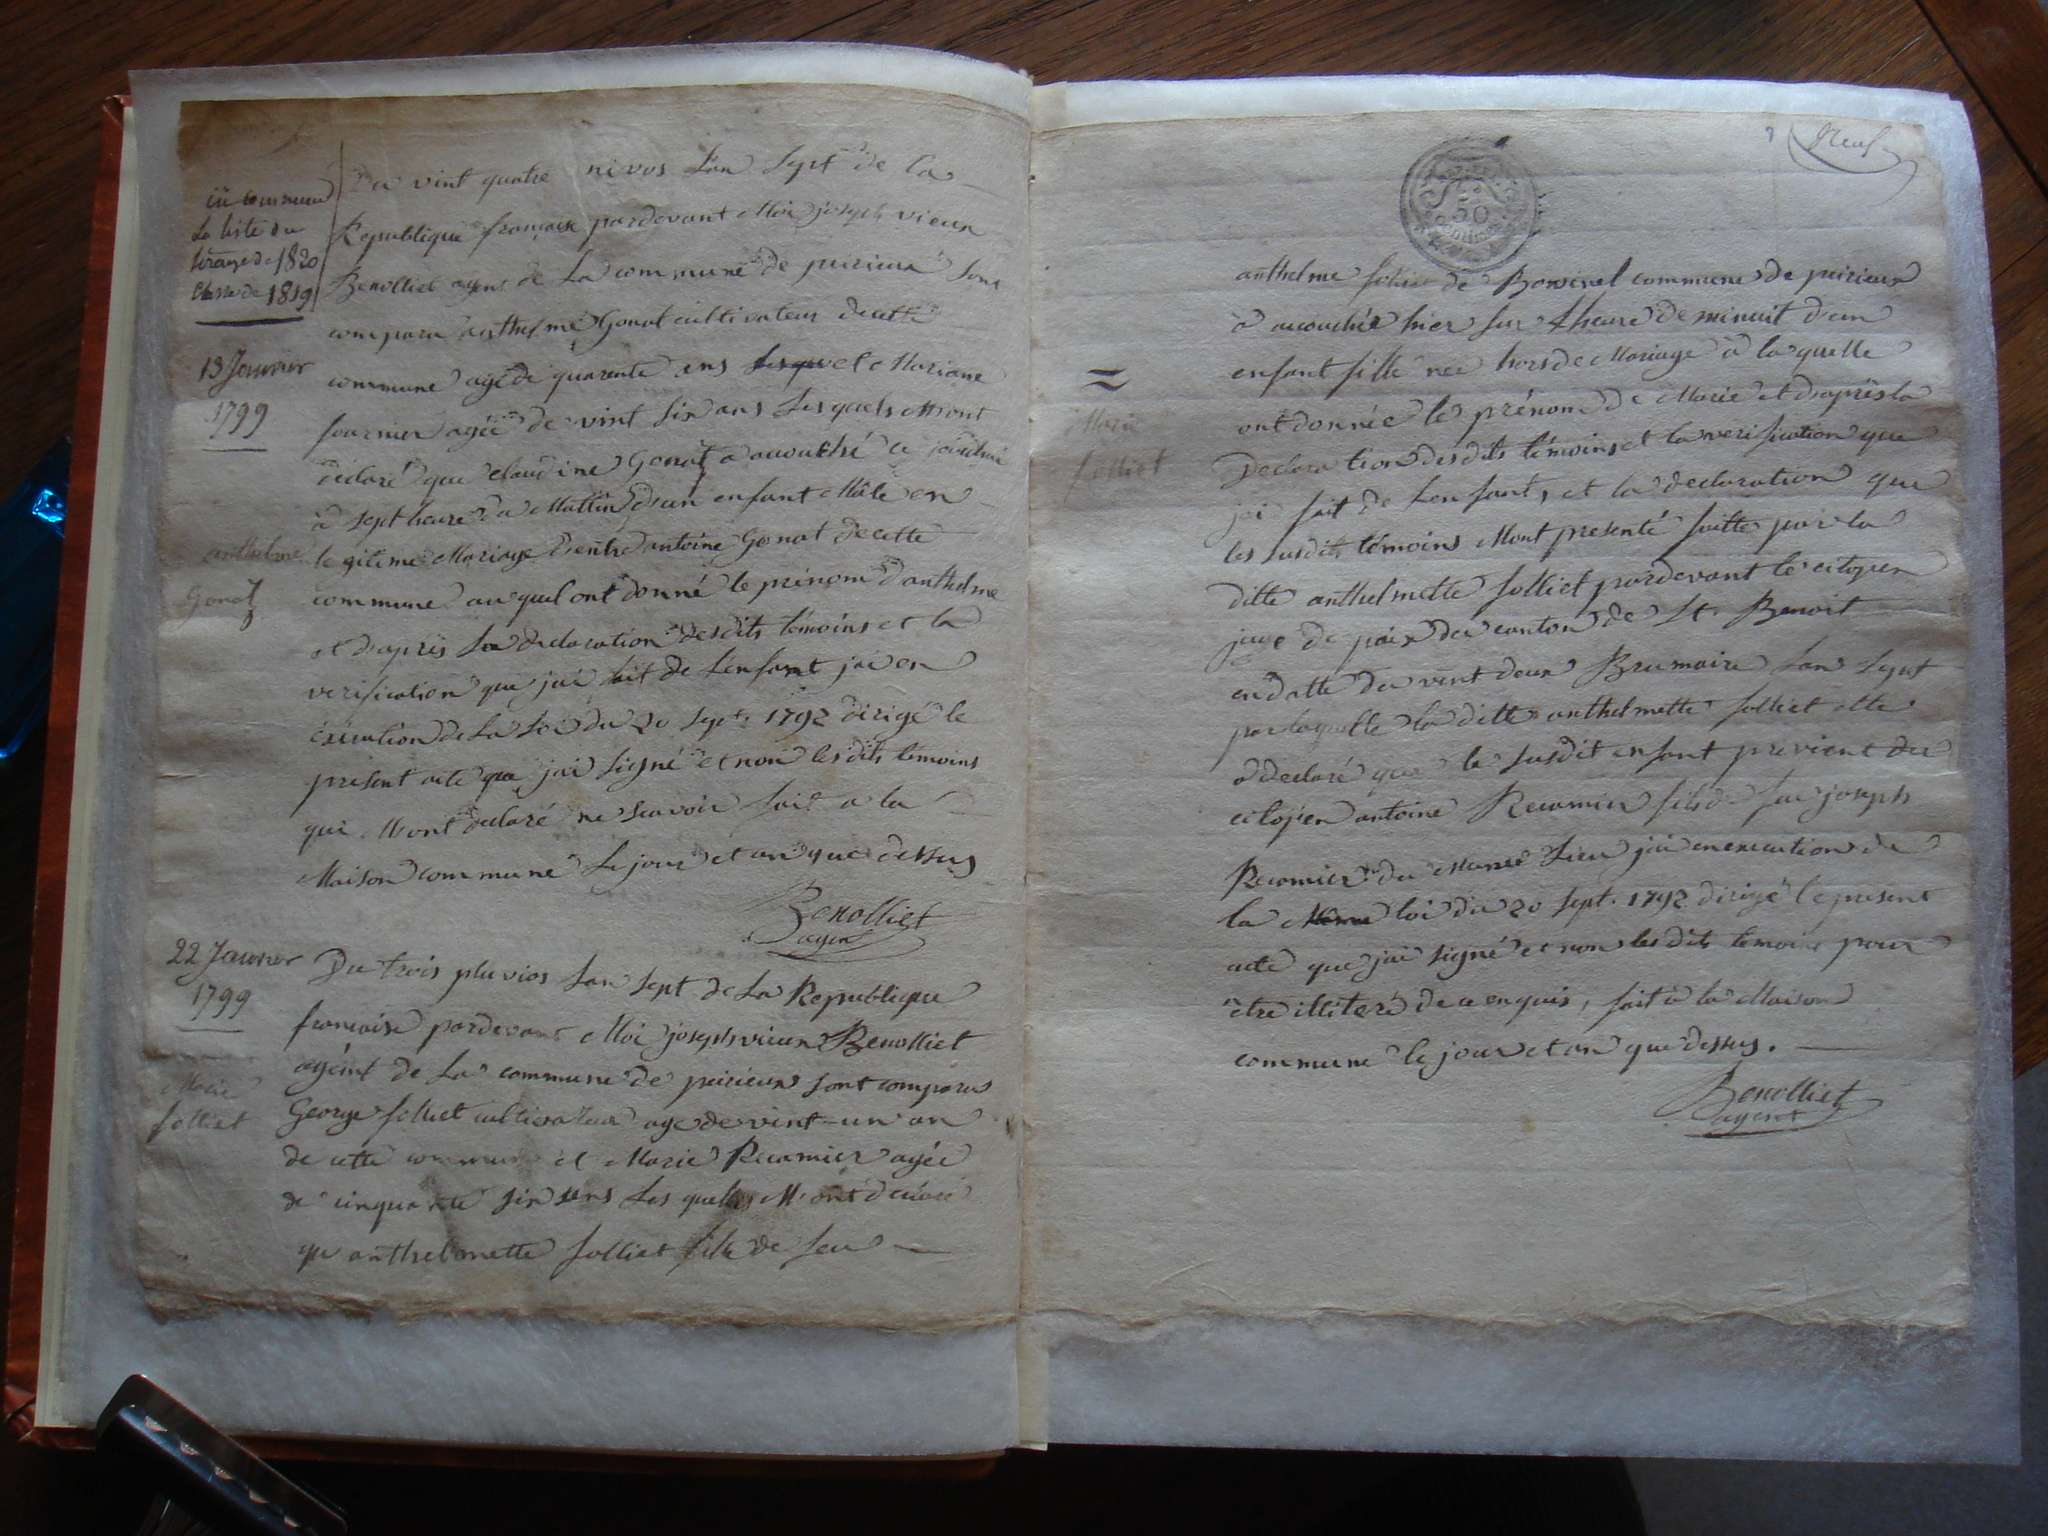 ici commence
la liste du
tirage de 1820
classe de 1819
Du vint quatre nivos Lan Sept de la
Republique française pardevant Moi joseph vieux
Benolliet agent de La commune de peirieux sont
comparu anthelme Gonat cultivateur de cette
13 Janvier
1799
commune agé de quarente ans Lesquel et Mariane
fournier agée de vint six ans Les quels M'ont
déclaré que claudine Gonat a accouché ce jourdhui
à sept heure du Mattin d'un enfant Mâle en
anthelme
Gonat
legitime Mariage d'entre antoine Gonat de cette
commune au quel ont donné le prénom d'anthelme
et d'apres La declaration desdits témoins et la
verification que jai fait de L'enfant jai en
éxécution de La Loi du 20 Sept. 1792 dirigé le
présent acte que jai signé et non lesdits témoins
qui M'ont declaré ne scavoir fait a la
Maison commune Le jour et an que dessus
Benolliet
agent
22 Janvier
1799
Du trois pluvios Lan sept de La Republique
françoise pardevant Moi joseph vieux Benolliet
agéint de La commune de peirieux sont comparu
Marie
folliet
George folliet cultivateur age de vint un an
de cette commune et Marie Recamier agée
de cinquante six ans Les quelles M'ont déclaré
qu anthelmette folliet fille de feu
Neuf
50
anthelme folliet de Bovinel commune de peirieux
à accouchée hier sur Lheure de minuit d'un
enfant fille née hors de Mariage à la quelle
=
Marie
folliet
ont donnée le prénom de Marie et d'après la
Declaration desdits témoins et la verification que
jai fait de Lenfant, et la declaration que
les susdits témoins M'ont presenté faitte par la
ditte anthelmette folliet pardevant le citoyen
juge de paix du canton de St. Benoit
en datte du vint deux Brumaire Lan Sept
par laquelle la ditte anthelmette folliet elle
a declaré que le susdit enfant provient du
citoyen antoine Recamier fils de feu joseph
Recamier du Meme Lieu jai en execution de
la Meme loi du 20 Sept. 1792 dirigé le present
acte que jai signé et non lesdits temoins pour
être illiteré de ce enquis, fait à la Maison
commune le jour et an que dessus.
Benolliet
agent